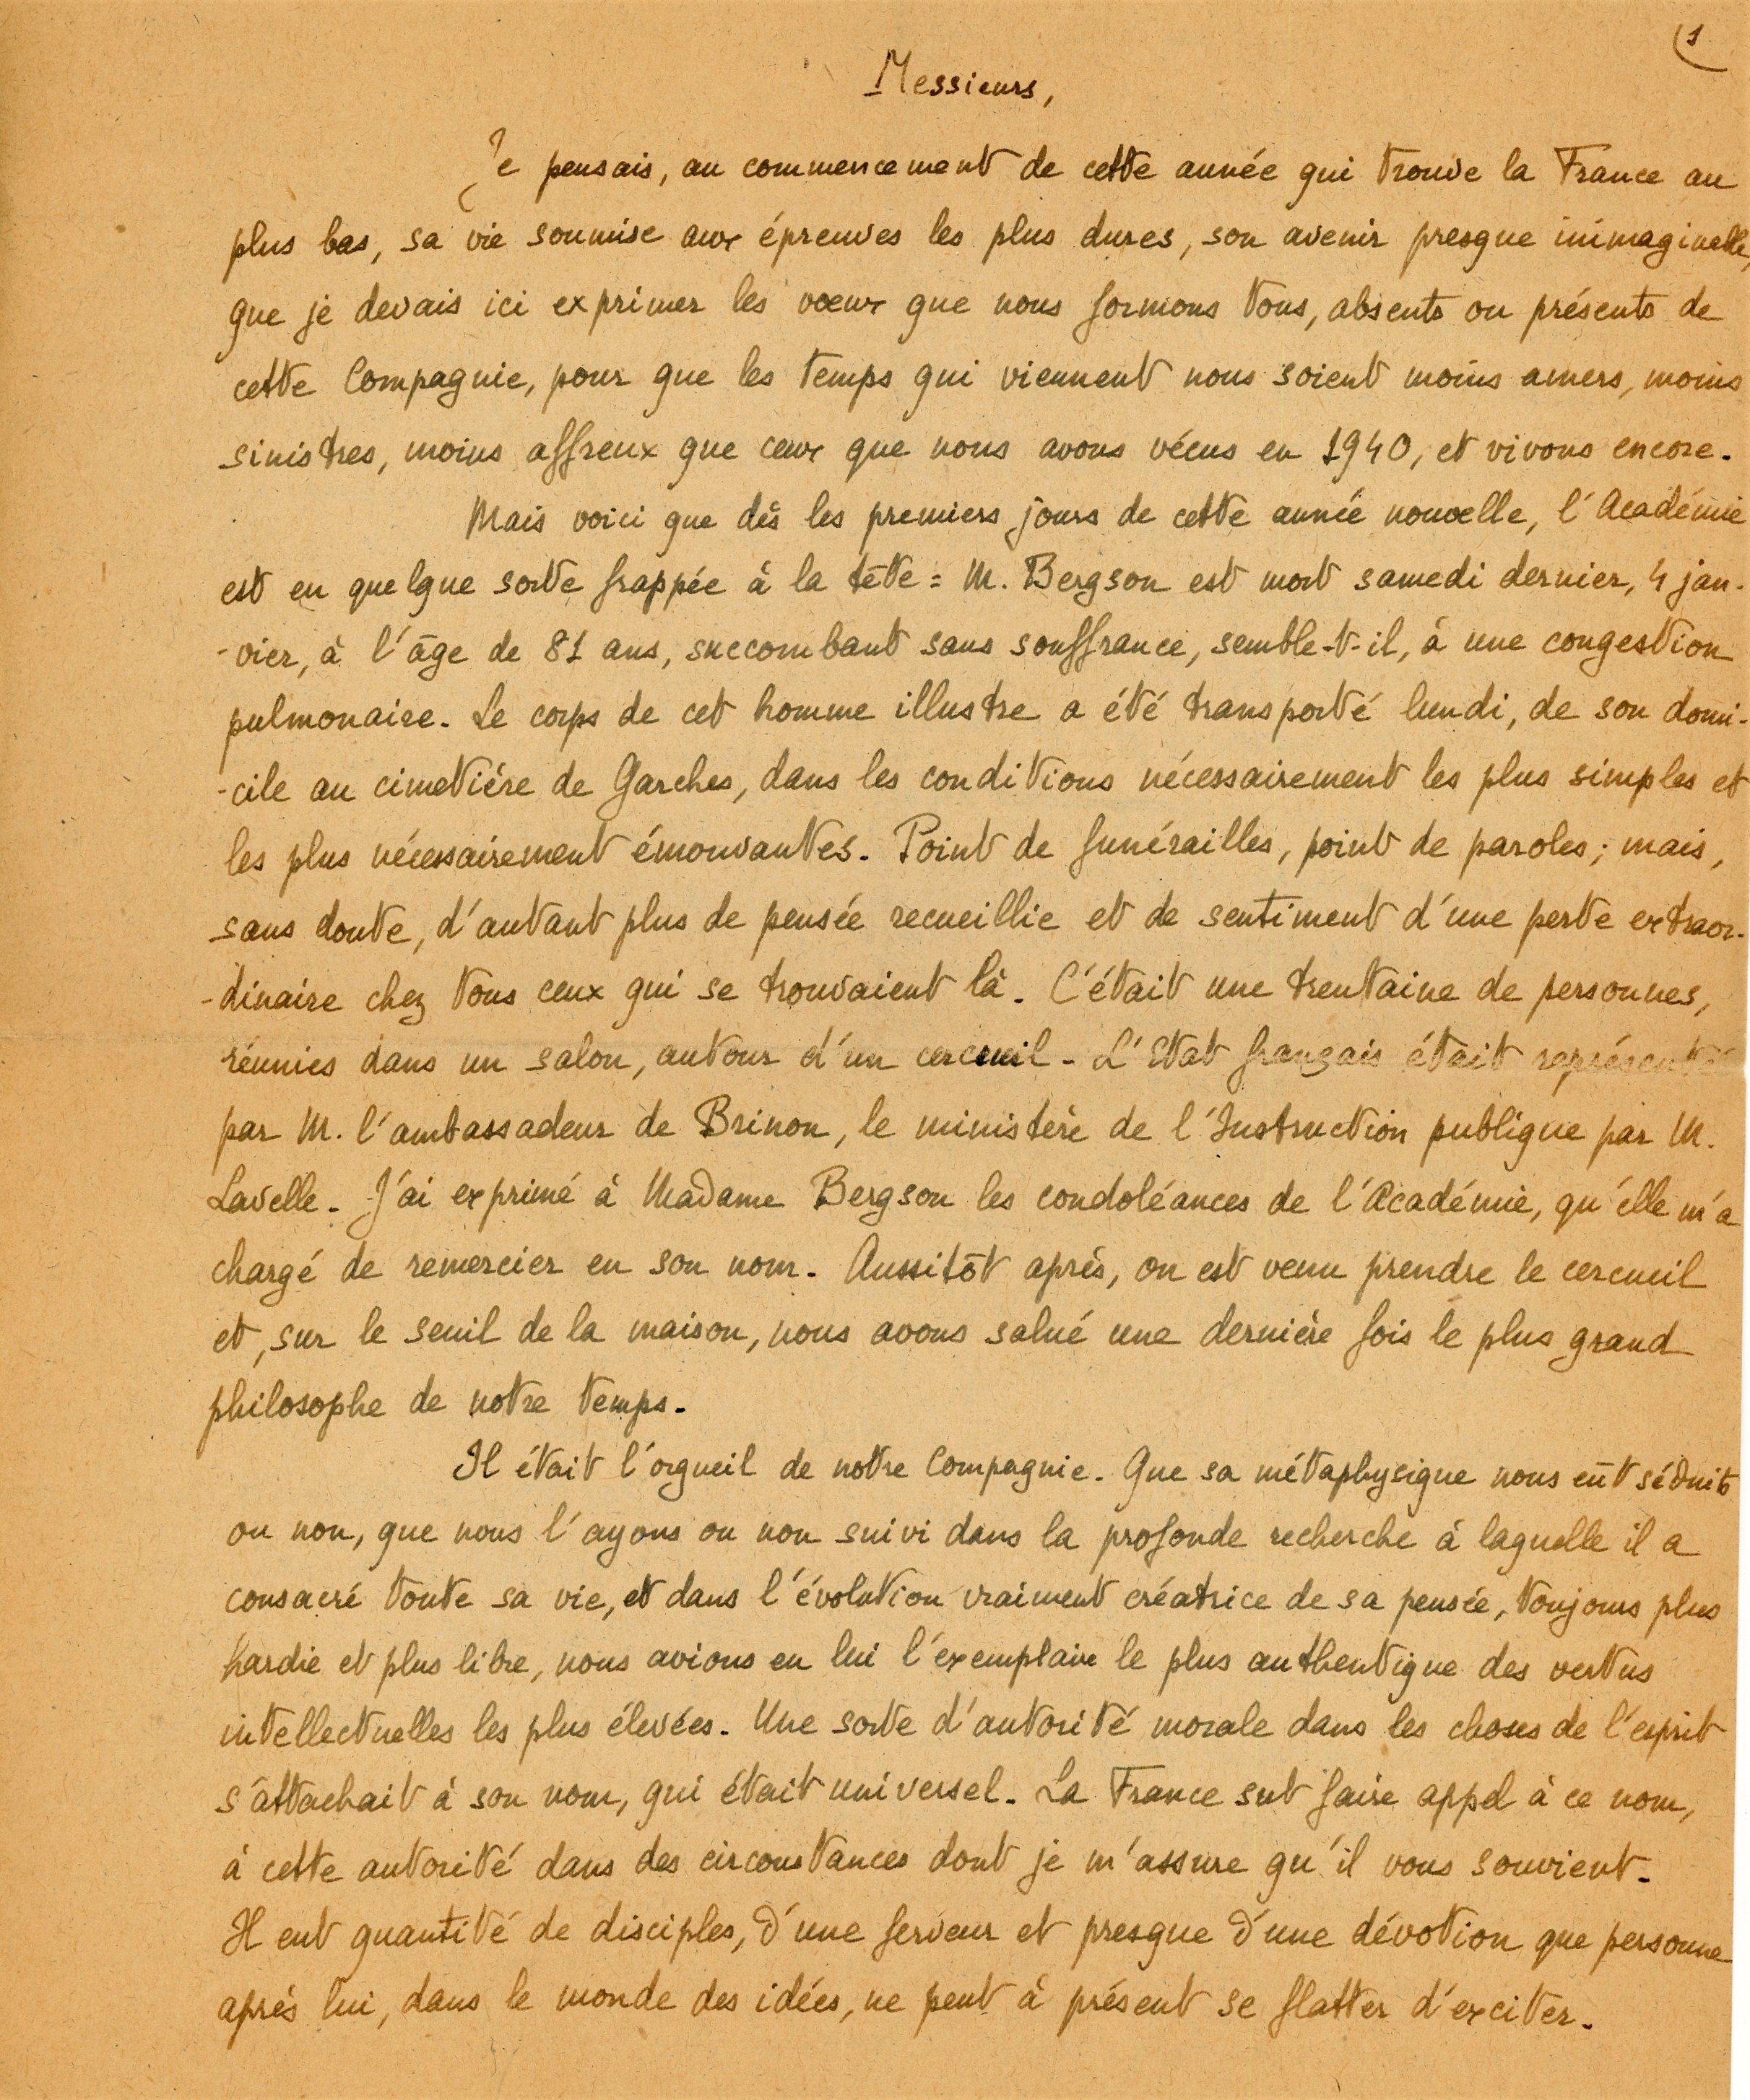 1
Messieurs,
Je pensais, au commencement de cette année qui trouve la France au
plus bas, sa vie soumise aux épreuves les plus dures, son avenir presque inimaginable,
que je devais ici exprimer les vœux que nous formons tous, absents ou présents de
cette Compagnie, pour que les temps qui viennent nous soient moins amers, moins
sinistres, moins affreux que ceux que nous avons vécus en 1940, et vivons encore.
Mais voici que dès les premiers jours de cette année nouvelle, l'Académie
est en quelque sorte frappée à la tête : M. Bergson est mort samedi dernier, 4 jan-
-vier, à l'âge de 81 ans, succombant sans souffrance, semble-t-il, à une congestion
pulmonaire. Le corps de cet homme illustre a été transporté lundi, de son domi-
-cile au cimetière de Garches, dans les conditions nécessairement les plus simples et
les plus nécessairement émouvantes. Point de funérailles, point de paroles ; mais,
sans doute, d'autant plus de pensée recueillie et de sentiment d'une perte extraor-
-dinaire chez tous ceux qui se trouvaient là. C'était une trentaine de personnes,
réunies dans un salon, autour d'un cercueil. L'Etat français était représenté
par M. l'ambassadeur de Brinon, le ministère de l'Instruction publique par M.
Lavelle. J'ai exprimé à Madame Bergson les condoléances de l'Académie, qu'elle m'a
chargé de remercier en son nom. Aussitôt après, on est venu prendre le cercueil
et, sur le seuil de la maison, nous avons salué une dernière fois le plus grand
philosophe de notre temps.
Il était l'orgueil de notre Compagnie. Que sa métaphysique nous eût séduits
ou non, que nous l'ayons ou non suivi dans la profonde recherche à laquelle il a
consacré toute sa vie, et dans l'évolution vraiment créatrice de sa pensée, toujours plus
hardie et plus libre, nous avions en lui l'exemplaire le plus authentique des vertus
intellectuelles les plus élevées. Une sorte d'autorité morale dans les choses de l'esprit
s'attachait à son nom, qui était universel. La France sut faire appel à ce nom,
à cette autorité dans des circonstances dont je m'assure qu'il vous souvient.
Il eut quantité de disciples, d'une ferveur et presque d'une dévotion que personne
après lui, dans le monde des idées, ne peut à présent se flatter d'exciter.